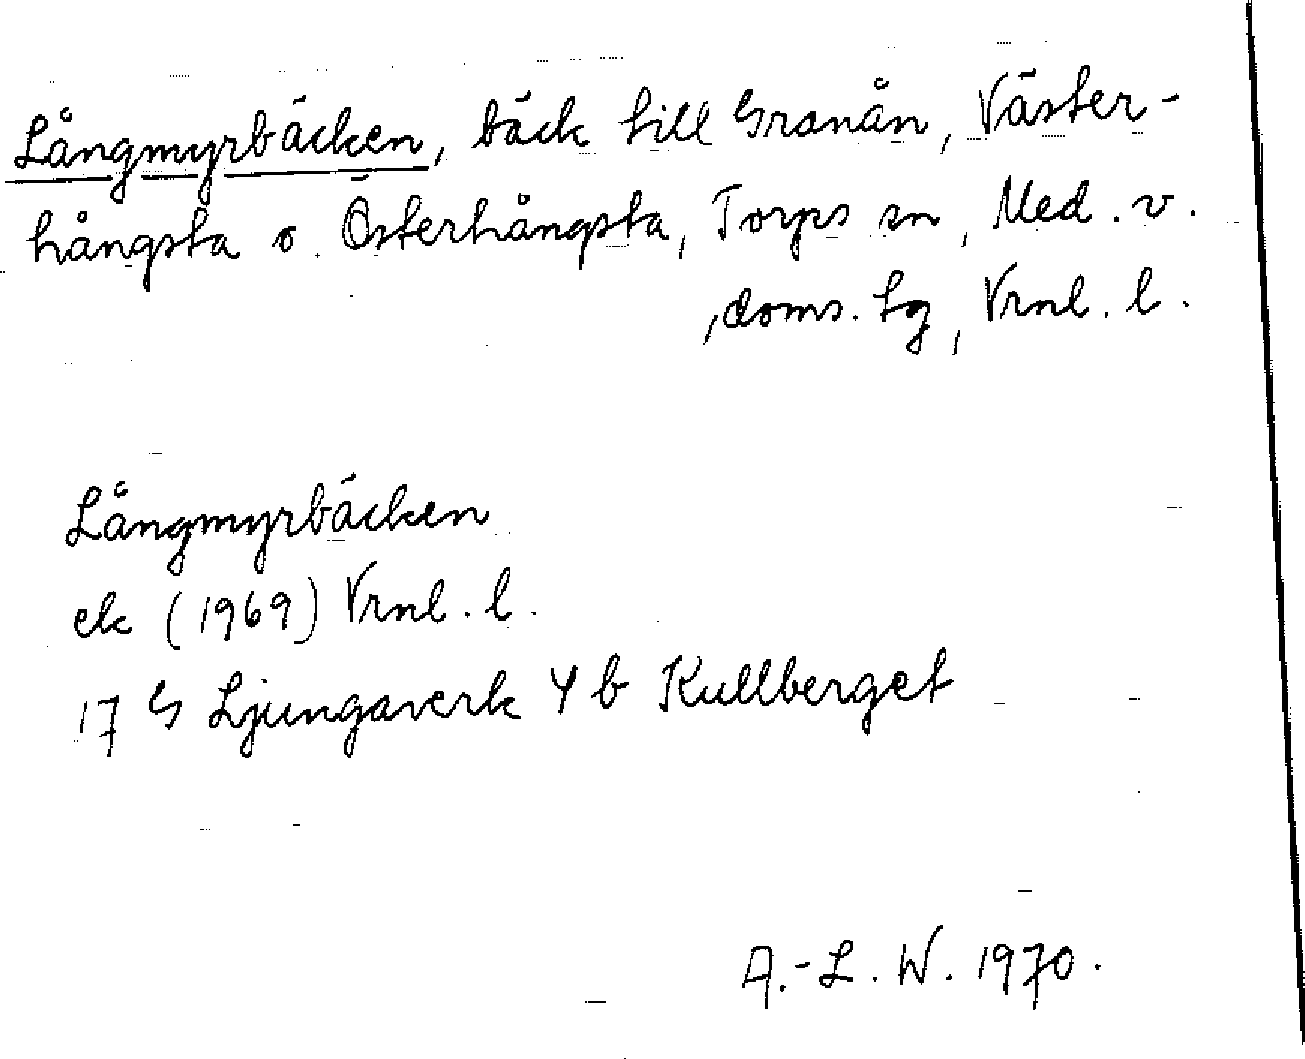 Långmyrbäcken, bäck till Granån, Väster-
hångsta o. Österhångsta, Torps sn, Med. v.
, doms. tg, Vrnl. l.
Långmyrbäcken
ek (1969) Vrnl. l.
17 G Ljungaverk 4 b Kullberget
A.-L. W. 1970.